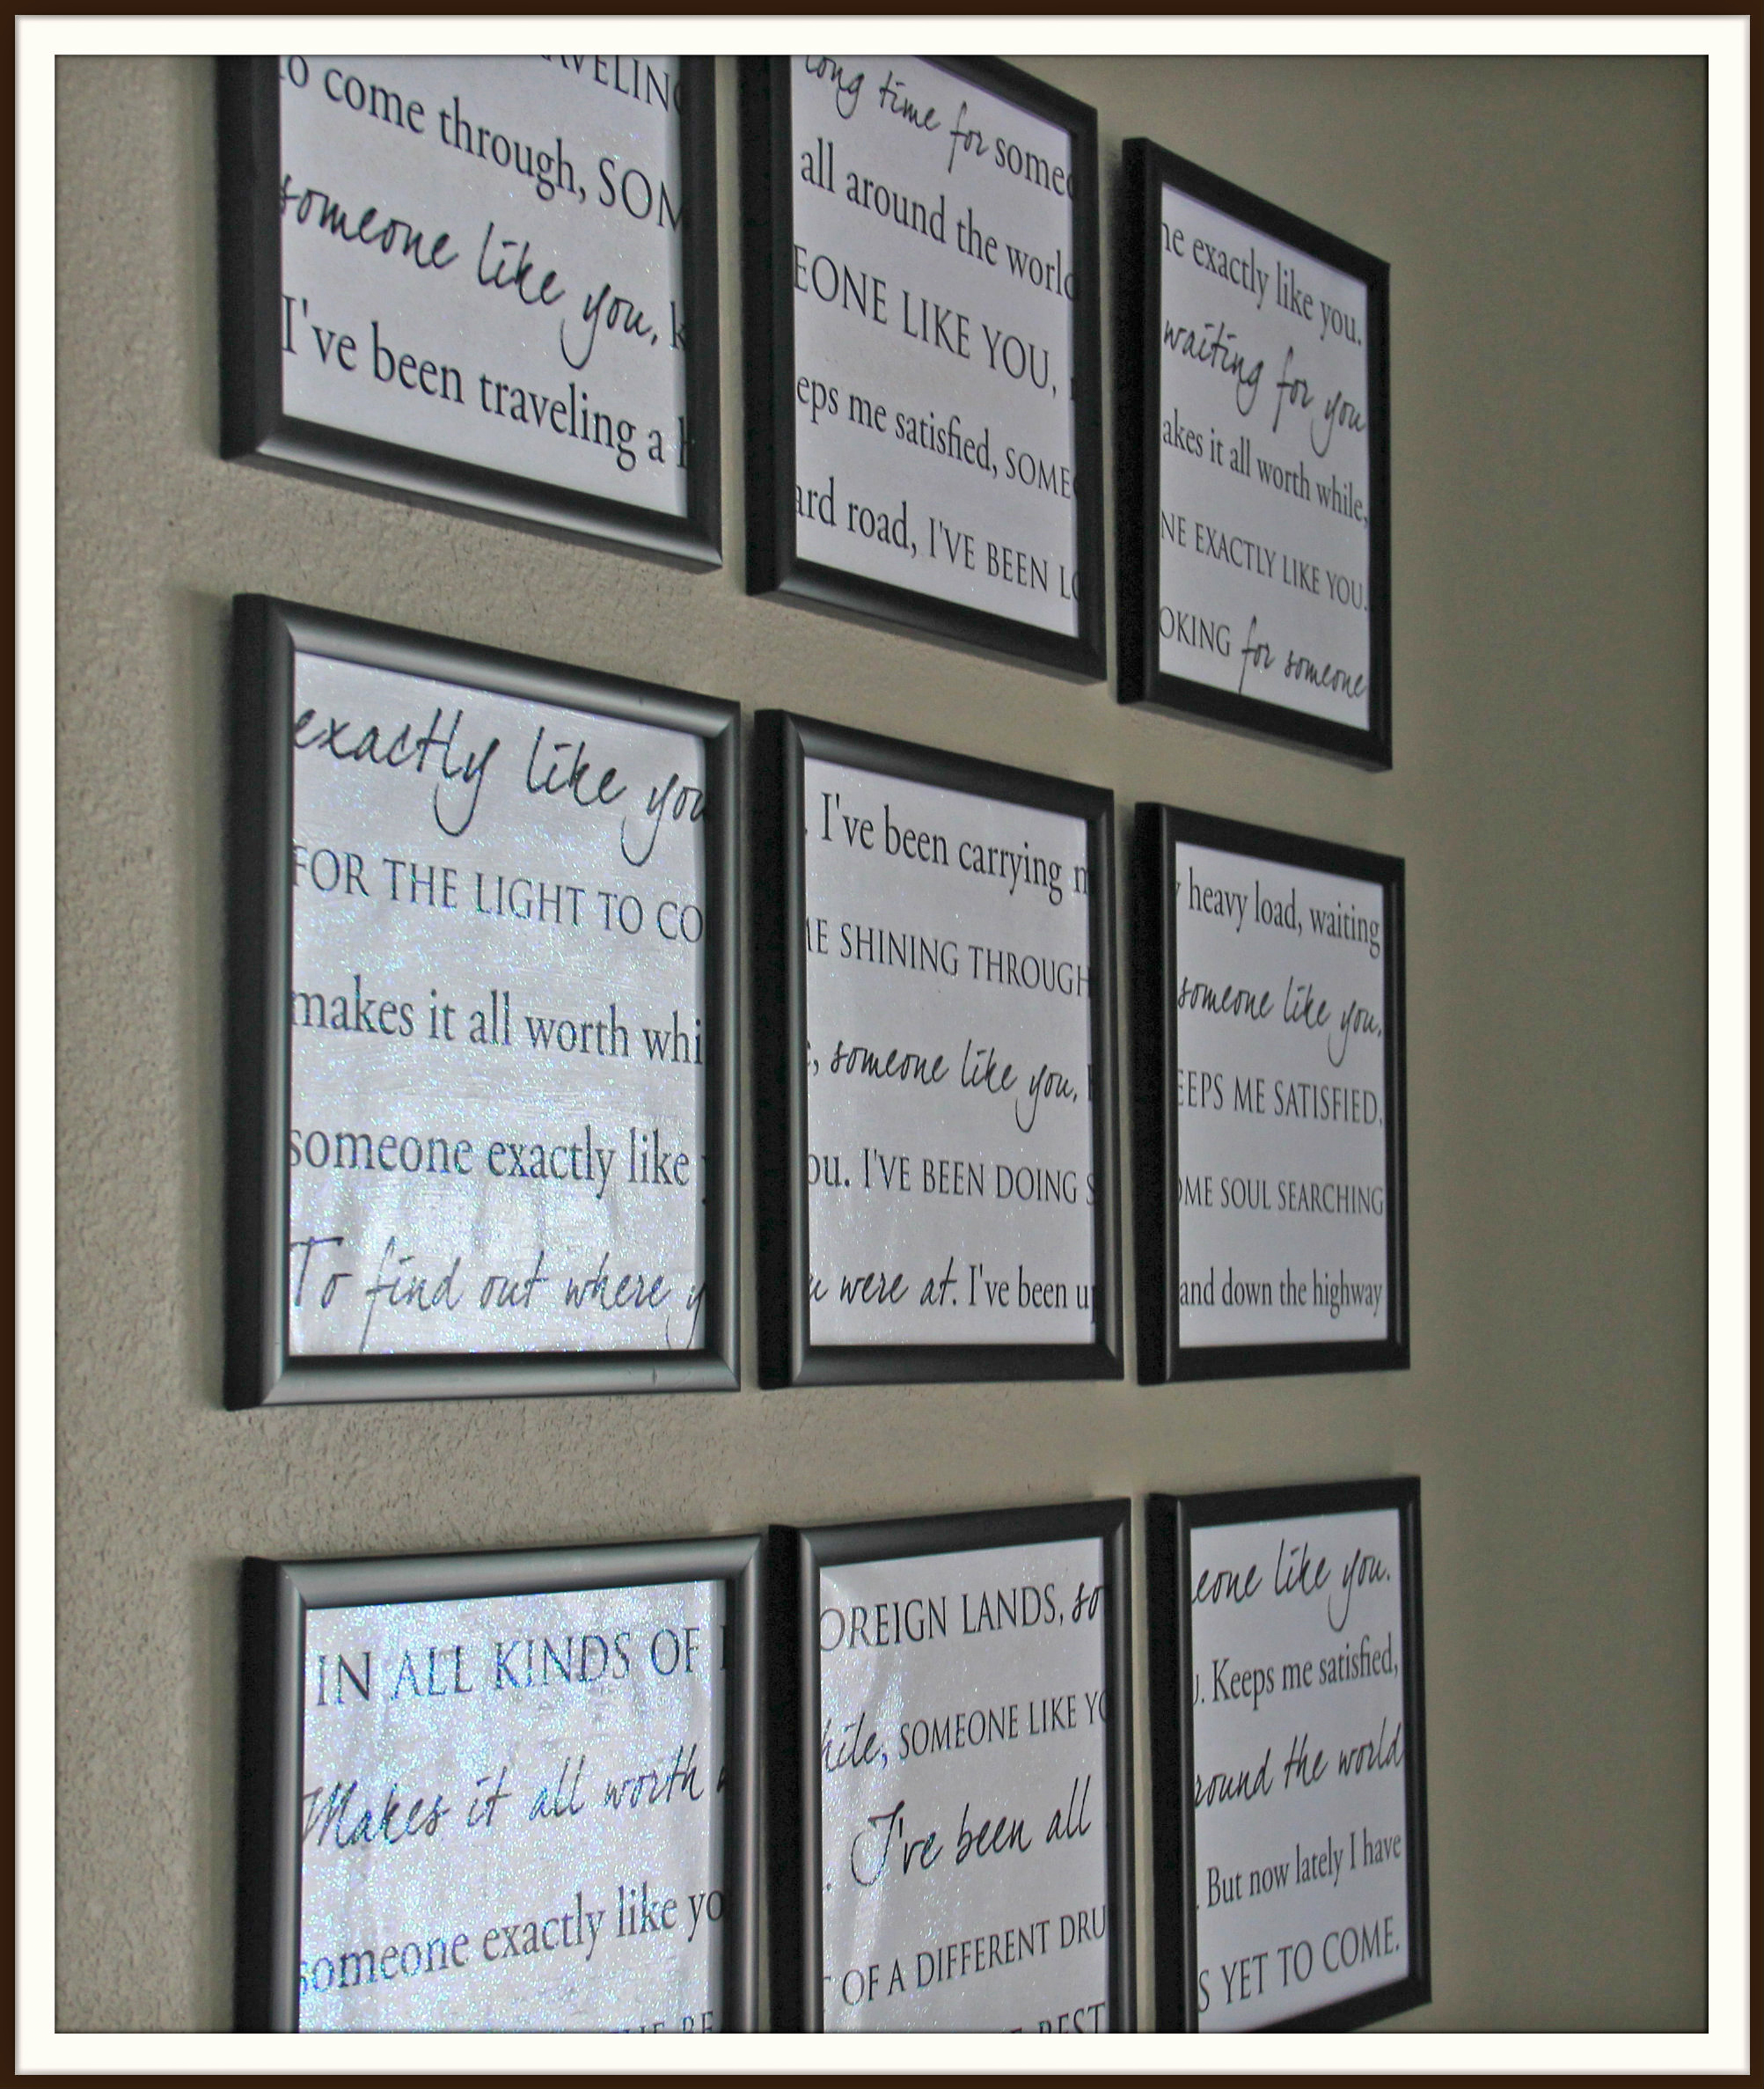 to come through, SOM
someone like you. k
I've been traveling a h
long time for someo
all around the world
EONE LIKE YOU,
eps me satisfied, SOME
ard road, I'VE BEEN LO
ne exactly like you.
waiting for you
akes it all worth while,
NE EXACTLY LIKE YOU.
OKING for someone
exactly like you
FOR THE LIGHT TO CO
makes it all worth whi
someone exactly like
To find out where y
. I've been carrying m
ME SHINING THROUGH
, someone like you.
ou. I'VE BEEN DOING S
u were at. I've been up
y heavy load, waiting
someone like you.
EEPS ME SATISFIED.
OME SOUL SEARCHING
and down the highway
IN ALL KINDS OF
Makes it all worth
someone exactly like yo
OREIGN LANDS, so
hile, SOMEONE LIKE YO
. I've been all
OF A DIFFERENT DRU
BEST
eone like you.
. Keeps me satisfied,
round the world
. But now lately I have
S YET TO COME.